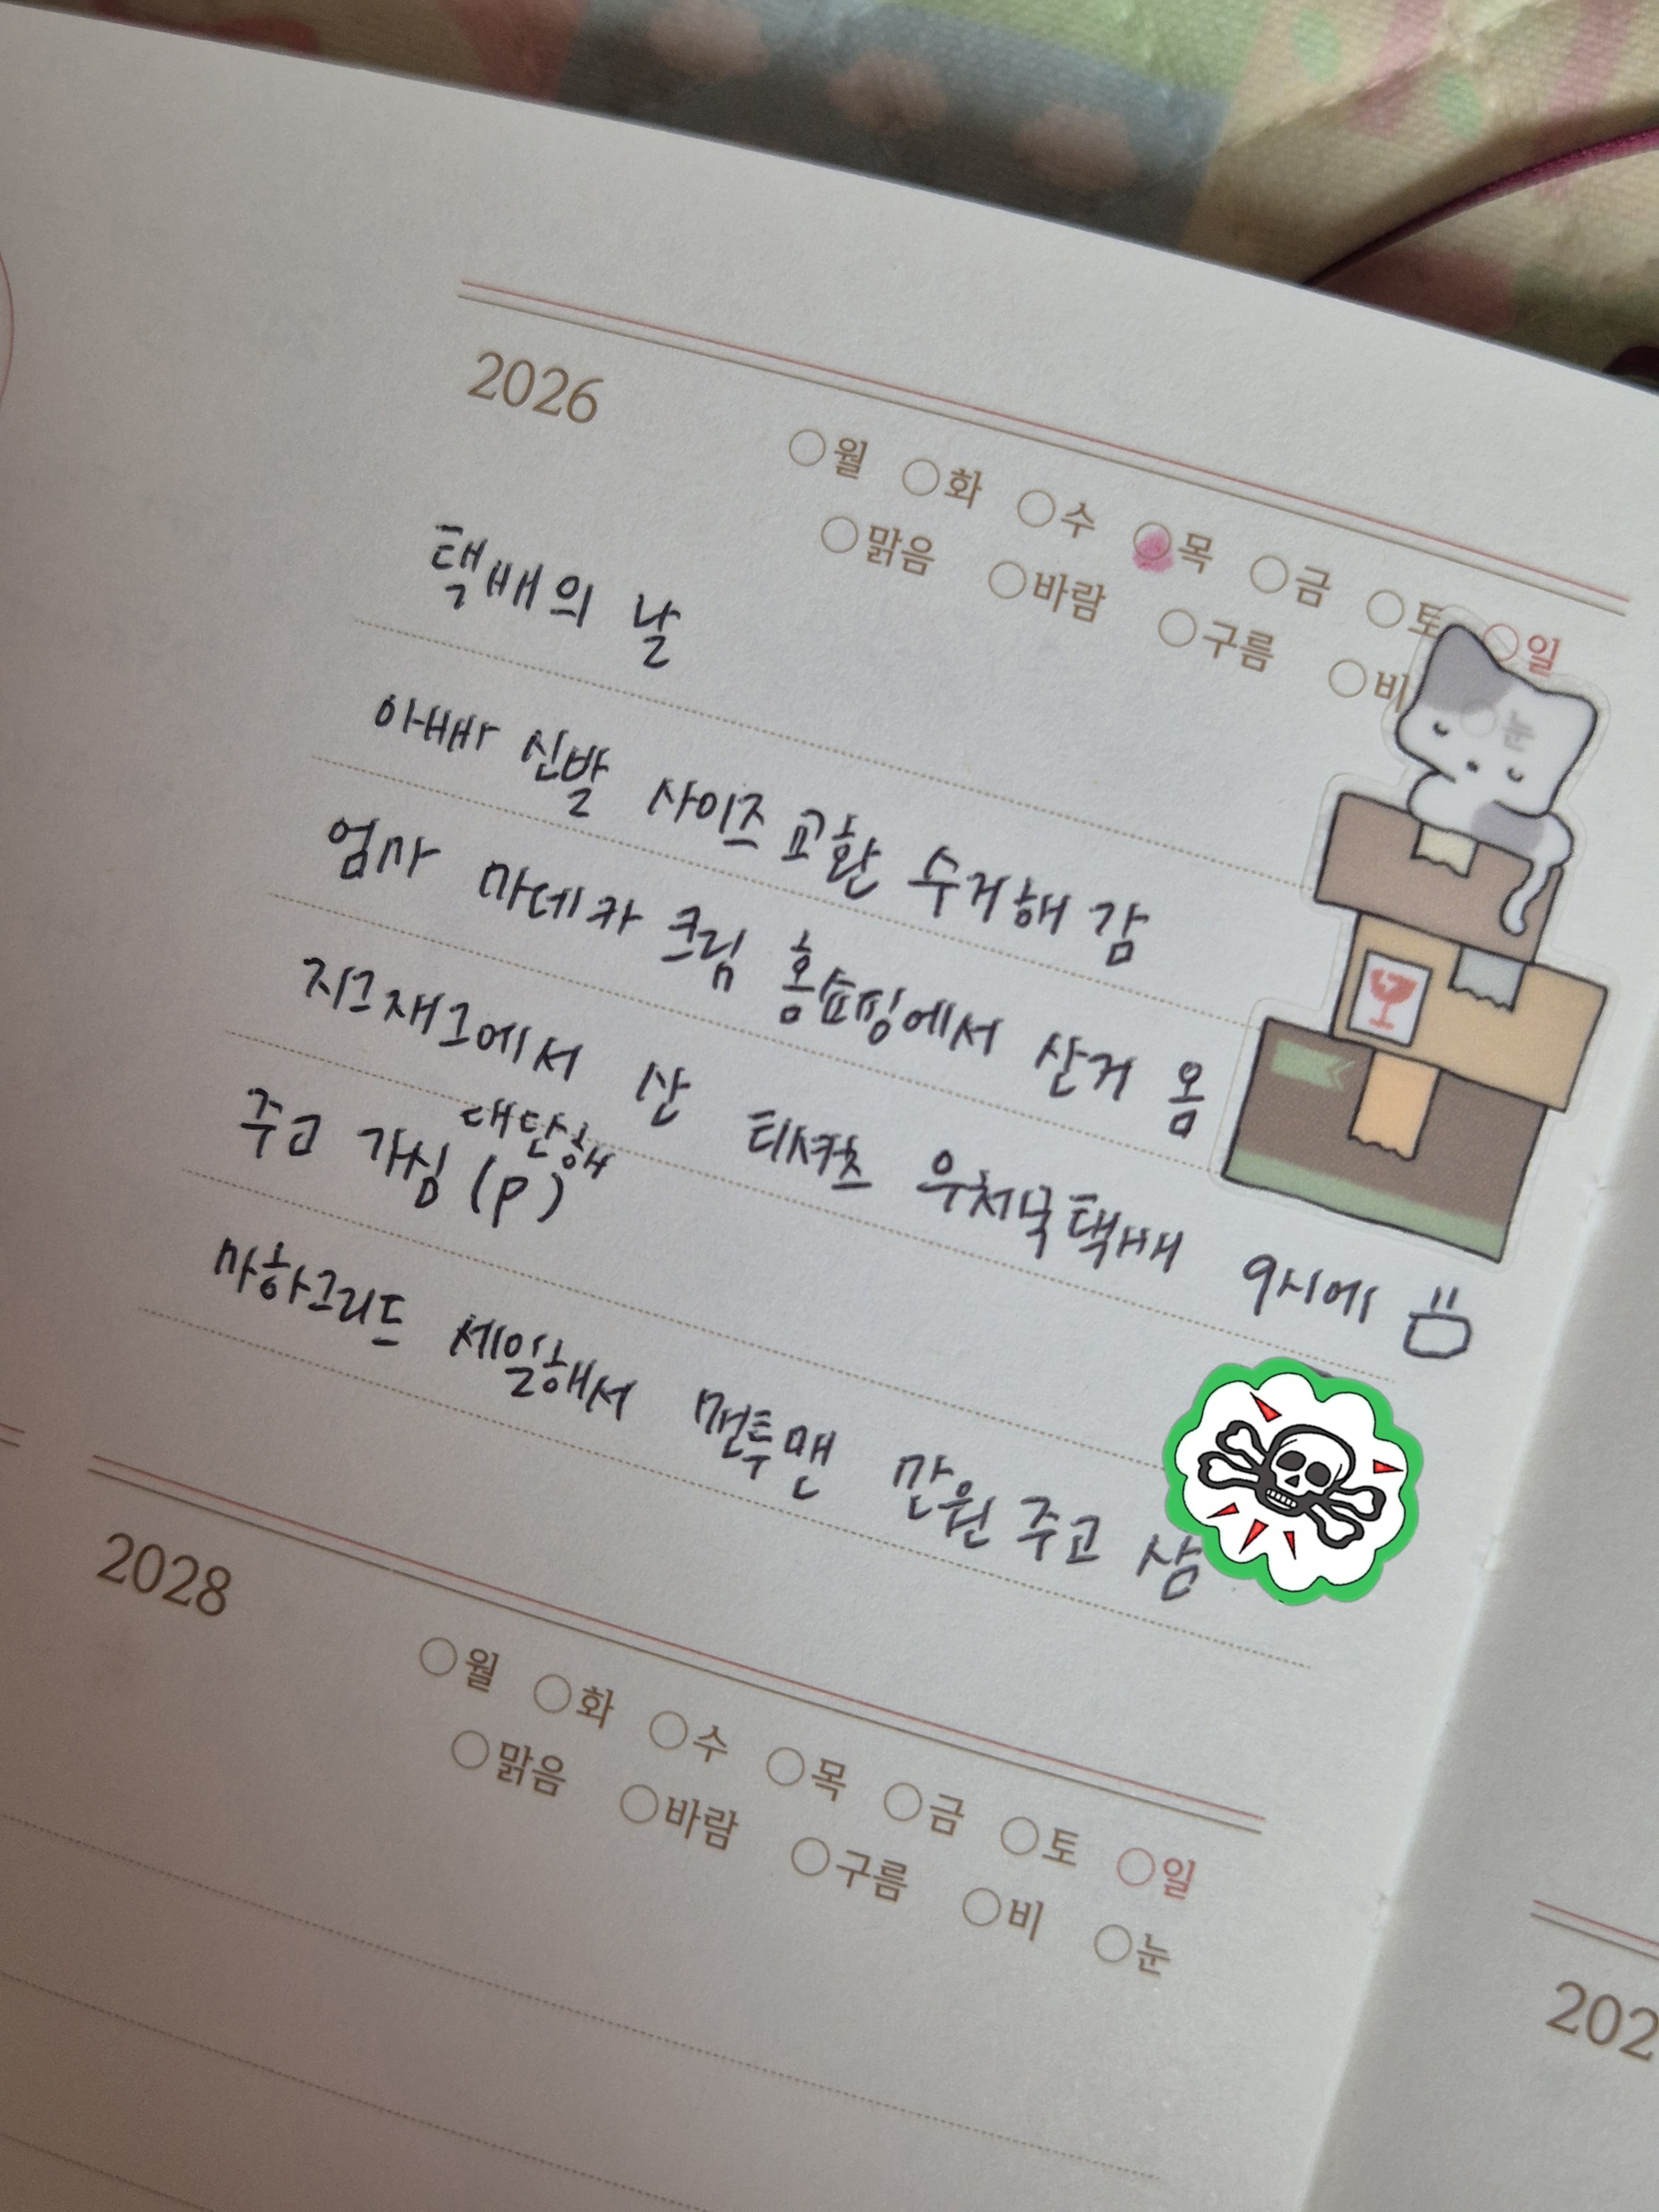 2026
○월 ○화 ○수 ○목 ○금 ○토 ○일
○맑음 ○바람 ○구름 ○비 ○눈
택배의 날
아빠 신발 사이즈 교환 수거해 감
엄마 마데카 크림 홈쇼핑에서 산거 옴
지그재그에서 산 티셔츠 우체국택배 9시에
대단해
주고 가심 (P)
마하그리드 세일해서 맨투맨 만원 주고 삼
2028
○월 ○화 ○수 ○목 ○금 ○토 ○일
○맑음 ○바람 ○구름 ○비 ○눈
202